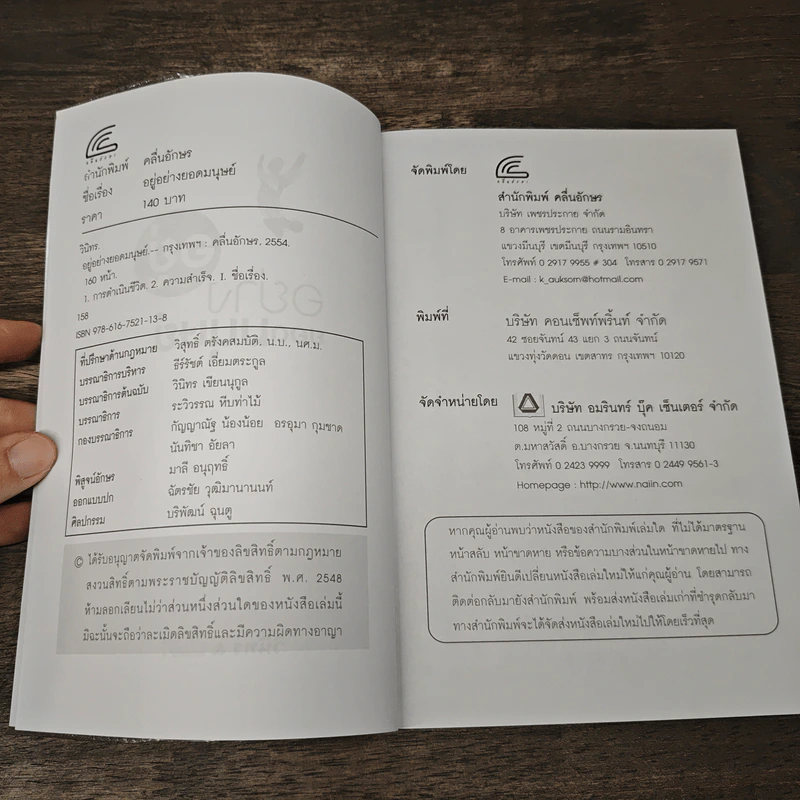 คลื่นอักษร
สำนักพิมพ์ คลื่นอักษร
ชื่อเรื่อง อยู่อย่างยอดมนุษย์
ราคา 140 บาท
วินิทร.
อยู่อย่างยอดมนุษย์.-- กรุงเทพฯ : คลื่นอักษร, 2554.
160 หน้า.
1. การดำเนินชีวิต. 2. ความสำเร็จ. I. ชื่อเรื่อง.
158
ISBN 978-616-7521-13-8
ที่ปรึกษาด้านกฎหมาย วิสุทธิ์ ตรังคสมบัติ, น.บ., นศ.ม.
บรรณาธิการบริหาร ธีร์รัชต์ เอี่ยมตระกูล
บรรณาธิการต้นฉบับ วินิทร เขียนนุกูล
บรรณาธิการ ระวิวรรณ หีบท่าไม้
กองบรรณาธิการ กัญญาณัฐ น้องน้อย อรอุมา กุมขาด
นันทิชา อัยลา
พิสูจน์อักษร มาลี อนุฤทธิ์
ออกแบบปก ฉัตรชัย วุฒิมานานนท์
ศิลปกรรม บริพัฒน์ ฉุนตู
© ได้รับอนุญาตจัดพิมพ์จากเจ้าของลิขสิทธิ์ตามกฎหมาย
สงวนสิทธิ์ตามพระราชบัญญัติลิขสิทธิ์ พ.ศ. 2548
ห้ามลอกเลียนไม่ว่าส่วนหนึ่งส่วนใดของหนังสือเล่มนี้
มิฉะนั้นจะถือว่าละเมิดลิขสิทธิ์และมีความผิดทางอาญา
จัดพิมพ์โดย
สำนักพิมพ์ คลื่นอักษร
บริษัท เพชรประกาย จำกัด
8 อาคารเพชรประกาย ถนนรามอินทรา
แขวงมีนบุรี เขตมีนบุรี กรุงเทพฯ 10510
โทรศัพท์ 0 2917 9955 # 304 โทรสาร 0 2917 9571
E-mail : k_auksorn@hotmail.com
พิมพ์ที่ บริษัท คอนเซ็พท์พริ้นท์ จำกัด
42 ซอยจันทน์ 43 แยก 3 ถนนจันทน์
แขวงทุ่งวัดดอน เขตสาทร กรุงเทพฯ 10120
จัดจำหน่ายโดย บริษัท อมรินทร์ บุ๊ค เซ็นเตอร์ จำกัด
108 หมู่ที่ 2 ถนนบางกรวย-จงถนอม
ต.มหาสวัสดิ์ อ.บางกรวย จ.นนทบุรี 11130
โทรศัพท์ 0 2423 9999 โทรสาร 0 2449 9561-3
Homepage : http://www.naiin.com
หากคุณผู้อ่านพบว่าหนังสือของสำนักพิมพ์เล่มใด ที่ไม่ได้มาตรฐาน
หน้าสลับ หน้าขาดหาย หรือข้อความบางส่วนในหน้าขาดหายไป ทาง
สำนักพิมพ์ยินดีเปลี่ยนหนังสือเล่มใหม่ให้แก่คุณผู้อ่าน โดยสามารถ
ติดต่อกลับมายังสำนักพิมพ์ พร้อมส่งหนังสือเล่มเก่าที่ชำรุดกลับมา
ทางสำนักพิมพ์จะได้จัดส่งหนังสือเล่มใหม่ไปให้โดยเร็วที่สุด